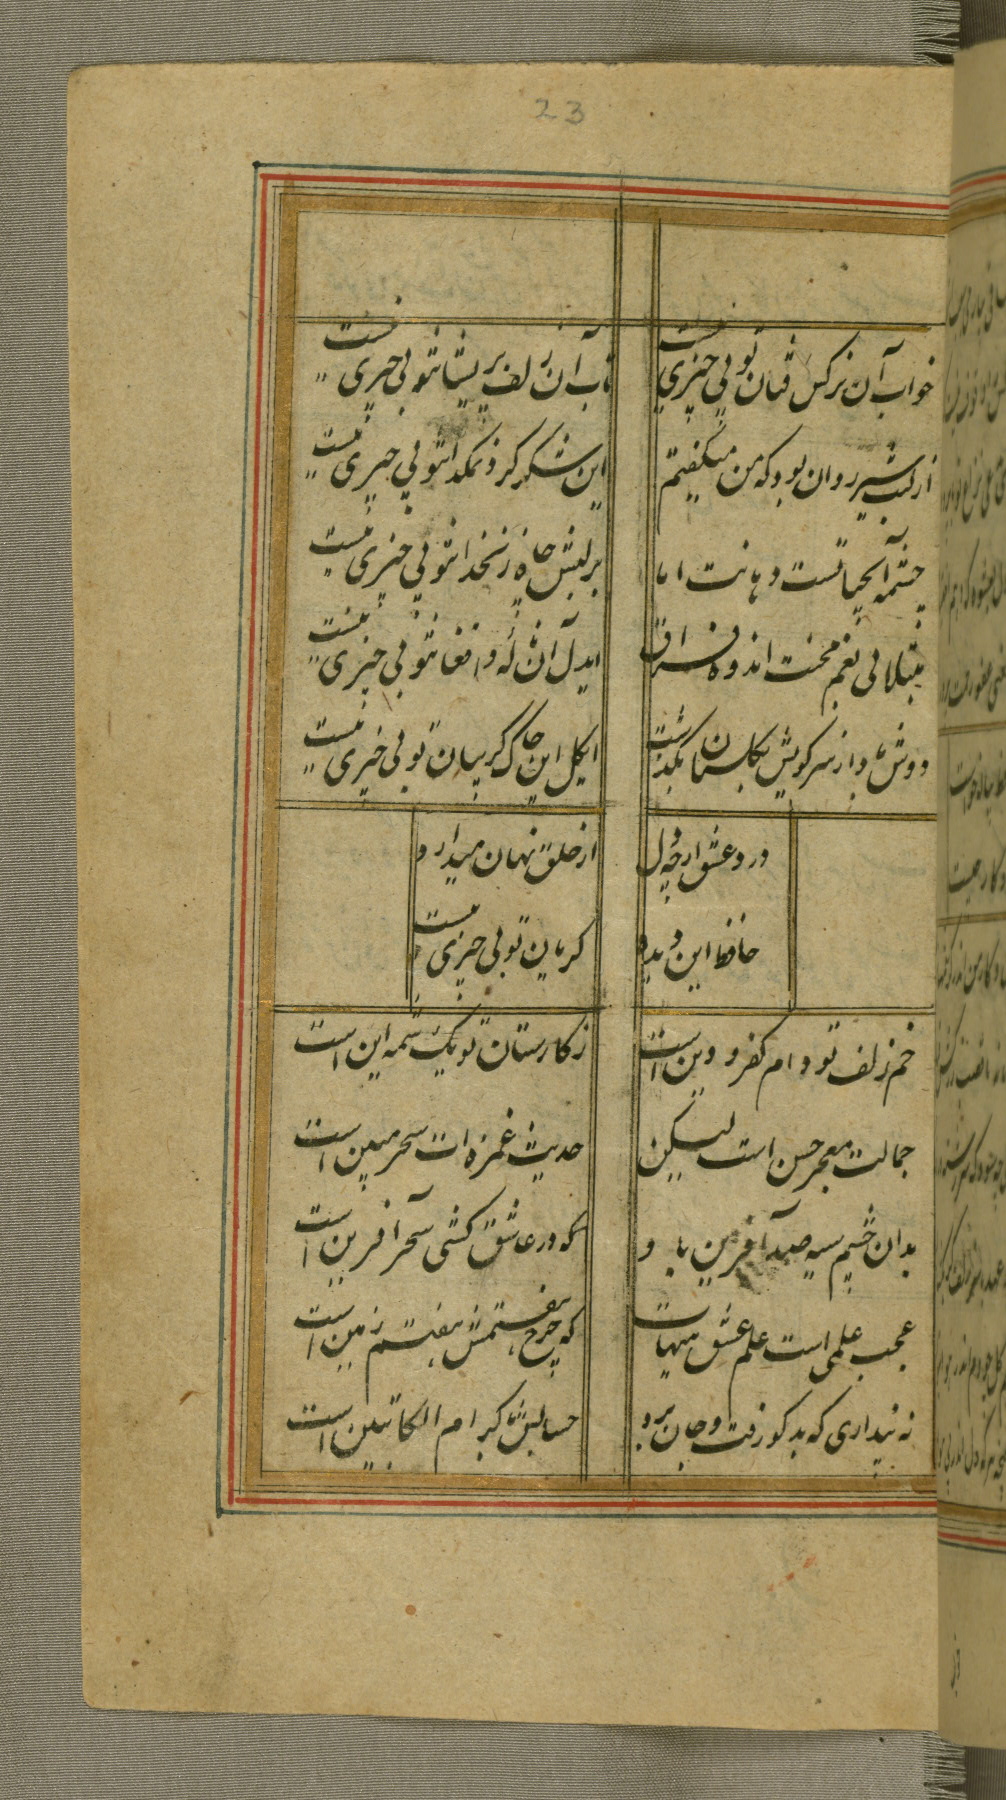 23
خواب آن نرکس فتان تو بی چیزی نیست
تاب آن زلف پریشانتو بی چیزی نیست
از لبت شیر روان بود که من میکفتم
این شکر کرد نمکدانتو بی چیزی نیست
چشمه آبحیاتست دهانت اما
بر لبش چاه زنخدانتو بی چیزی نیست
مبتلائی بغم محنت اندوه فراق
ایدل آن ناله و افغانتو بی چیزی نیست
دوش باد از سر کویش بکلستان بکذشت
ایکل این چاک کریبان تو بی چیزی نیست
درد عشق ارچه دل
از خلق نهان میدارد
حافظ این دیده
کریان تو بی چیزی نیست
خم زلف تو دام کفر و دین است
ز کارستان تو یک شمه این است
جمالت معجز حسن است لیکن
حدیث غمزه ات سحر مبین است
بدان چشم سیه صد آفرین باد
که در عاشق کشی سحر آفرین است
عجب علمی است علم عشق هیهات
که چرخ هفتمش هفتم زمین است
نه پنداری که بدکو رفت و جان برد
حسابش با کرام الکاتبین است